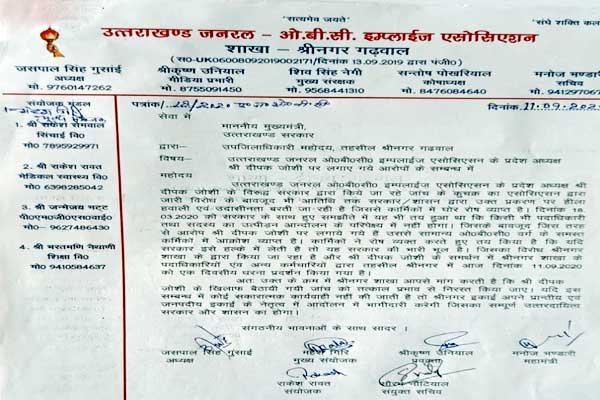 "सत्यमेव जयते"
"संघे शक्ति कला
उत्तराखण्ड जनरल - ओ.बी.सी. इम्पलाईज एसोसिएशन
शाखा - श्रीनगर गढ़वाल
(सं0-UK06008092019002171/दिनांक 13.09.2019 द्वारा पंजी0)
जसपाल सिंह गुसाईं
अध्यक्ष
मो. 9760147262
श्रीकृष्ण उनियाल
मीडिया प्रभारी
मो. 8755091450
शिव सिंह नेगी
मुख्य संरक्षक
मो. 9568441310
सन्तोष पोखरियाल
कोषाध्यक्ष
मो. 8476084640
मनोज भण्डारी
सचिव
मो. 941297067
पत्रांक/
दिनांक 11.09.202
संयोजक मंडल
1. श्री राकेश सेमवाल
सिंचाई वि0
मो0 7895929971
2. श्री राकेश रावत
मेडिकल स्वास्थ्य वि0
मो0 6398285042
3. श्री जन्मेजय भट्ट
पी0एम0जी0एस0वाई0
मो0- 9627486430
4. श्री भरतमणि नैथाणी
शिक्षा वि0
मो0 9410584637
सेवा में
माननीय मुख्यमंत्री,
उत्तराखण्ड सरकार
द्वारा— उपजिलाधिकारी महोदय, तहसील श्रीनगर गढ़वाल
विषय— उत्तराखण्ड जनरल ओ0बी0सी0 इम्पलाईज एसोसिएशन के प्रदेश अध्यक्ष
श्री दीपक जोशी पर लगाए गये आरोपों के सम्बन्ध में
महोदय
उत्तराखण्ड जनरल ओ0बी0सी0 इम्पलाईज एसोसिएशन के प्रदेश अध्यक्ष श्री
दीपक जोशी के विरुद्ध सरकार द्वारा किये जा रहे जांच के कुचक्र का एसोसिएशन द्वारा
जारी विरोध के बावजूद भी आतिथि तक सरकार/शासन द्वारा उक्त प्रकरण पर हीला
हवाली एवं उदासीनता बरती जा रही है जिससे कार्मिकों में घोर रोष व्याप्त है। दिनांक 18.
03.2020 को सरकार के साथ हुए समझौते में यह भी तय हुआ था कि किसी भी पदाधिकारी
तथा सदस्य का उत्पीड़न आन्दोलन के परिपेक्ष्य में नहीं होगा। जिसके बावजूद जिस तरह
से आरोप श्री दीपक जोशी पर लगाये गये हैं उससे सामान्य ओ0बी0सी0 वर्ग के समस्त
कार्मिकों में आक्रोश व्याप्त है। कार्मिकों ने रोष व्यक्त करते हुए तय किया है कि यदि
सरकार इसे हल्के में लेती है तो यह सरकार की भारी भूल है। जिसका विरोध श्रीनगर
शाखा के द्वारा किया जा रहा है और श्री दीपक जोशी के समर्थन में श्रीनगर शाखा के
पदाधिकारियों एवं अन्य कर्मचारियों द्वारा तहसील श्रीनगर में आज दिनांक 11.09.2020
को एक दिवसीय धरना प्रदर्शन किया गया है।
अतः उक्त के क्रम में श्रीनगर शाखा आपसे मांग करती है कि श्री दीपक
जोशी के खिलाफ बैठायी गयी जांच को तत्काल प्रभाव से निरस्त किया जाए। यदि इस
सम्बन्ध में कोई सकारात्मक कार्यवाही नहीं की जाती है तो श्रीनगर इकाई अपने प्रान्तीय एवं
जनपदीय इकाई के नेतृत्व में आन्दोलन में भागीदारी करेगी जिसका सम्पूर्ण उत्तरदायित्व
सरकार और शासन का होगा।
संगठनीय भावनाओं के साथ सादर ।
जसपाल सिंह गुसाईं
अध्यक्ष
महेश गिरि
संयोजक
श्रीकृष्ण उनियाल
प्रवक्ता
मनोज भण्डारी
महामंत्री
राकेश रावत
संयोजक
सौरभ नौटियाल
संयुक्त सचिव